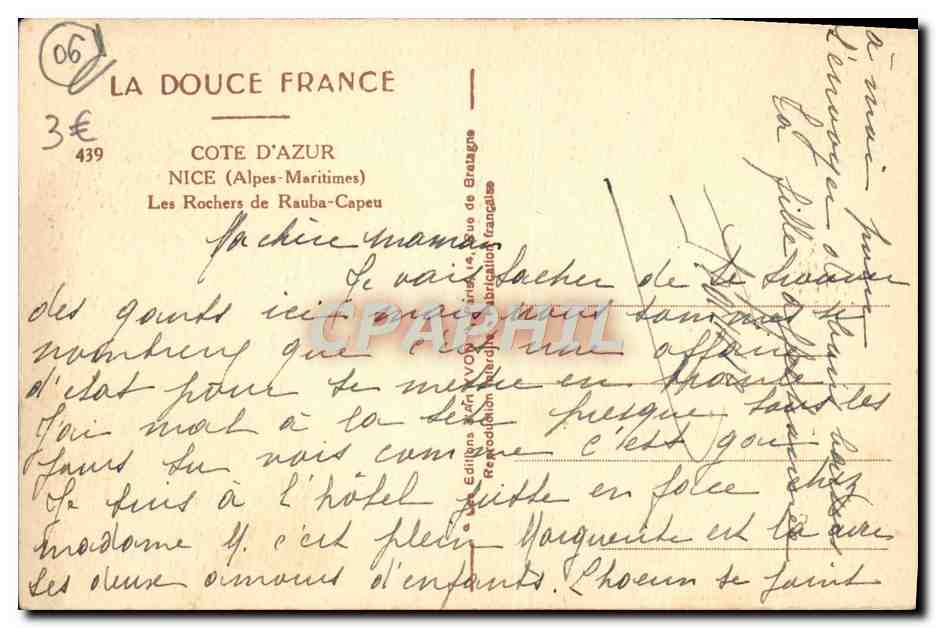 06
LA DOUCE FRANCE
3€
439
COTE D'AZUR
NICE (Alpes-Maritimes)
Les Rochers de Rauba-Capeu
Les Editions d'Art YVON, Paris, 14, Rue de Bretagne
Reproduction interdite Fabrication française
CPAPHIL
Ma chère maman
Je vais tacher de te trouver
des gants ici mais nous sommes si
nombreux que c'est une affaire
d'état pour se mettre en
J'ai mal à la presque tous les
jours tu vois comme c'est gai
Je suis à l'hôtel juste en face chez
madame M. c'est plein Marguerite est là avec
ses deux amours d'enfants. se joint
à moi pour
t'envoyer
ta fille